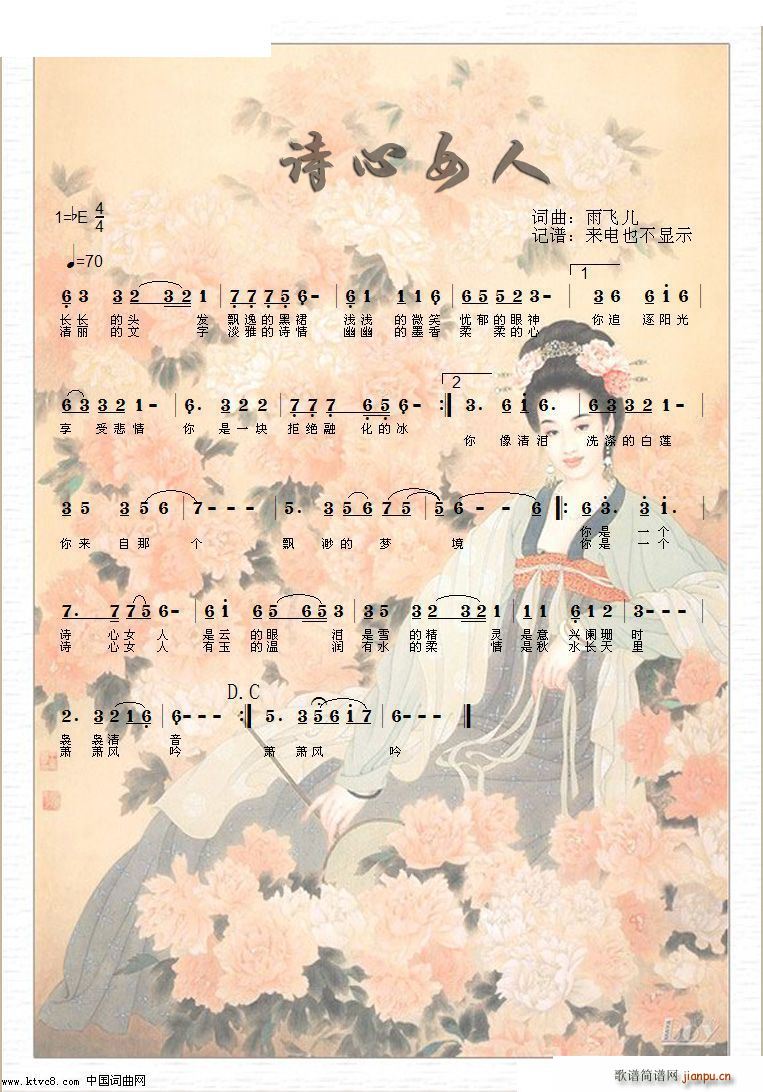 诗心女人
1=♭E 4/4
词曲：雨飞儿
♩=70
记谱：来电也不显示
1
6 3 3 2 3 2 1 | 7 7 7 5 6 - | 6 1 1 1 6 | 6 5 5 2 3 - | 3 6 6 i 6
长长 的头 发 飘逸的黑裙 浅浅 的微笑 忧郁的眼神 你追 逐阳光
清丽 的文 字 淡雅的诗情 幽幽 的墨香 柔柔的心
2
6 3 3 2 1 - | 6. 3 2 2 | 7 7 7 6 5 6 - :| 3. 6 i 6. | 6 3 3 2 1 - |
享 受悲情 你 是一块 拒绝融 化的冰
你 像清泪 洗涤的白莲
3 5 3 5 6 | 7 - - - | 5. 3 5 6 7 5 | 5 6 - - 6 |: 6 3. 3 i. |
你是一个
你来 自那 个 飘 渺的 梦 境 你是一个
7. 7 7 5 6 - | 6 i 6 5 6 5 3 | 3 5 3 2 3 2 1 | 1 1 6 1 2 | 3 - - - |
诗 心女 人 是云 的眼 泪 是雪 的精 灵 是意 兴阑珊 时
诗 心女 人 有玉 的温 润 有水 的柔 情 是秋 水长天 里
D.C
2. 3 2 1 6 | 6 - - - :| 5. 3 5 6 i 7 | 6 - - - |
袅 袅清 音
萧 萧风 吟 萧 萧风 吟
www.ktvc8.com 中国词曲网
歌谱简谱网
jianpu.cn